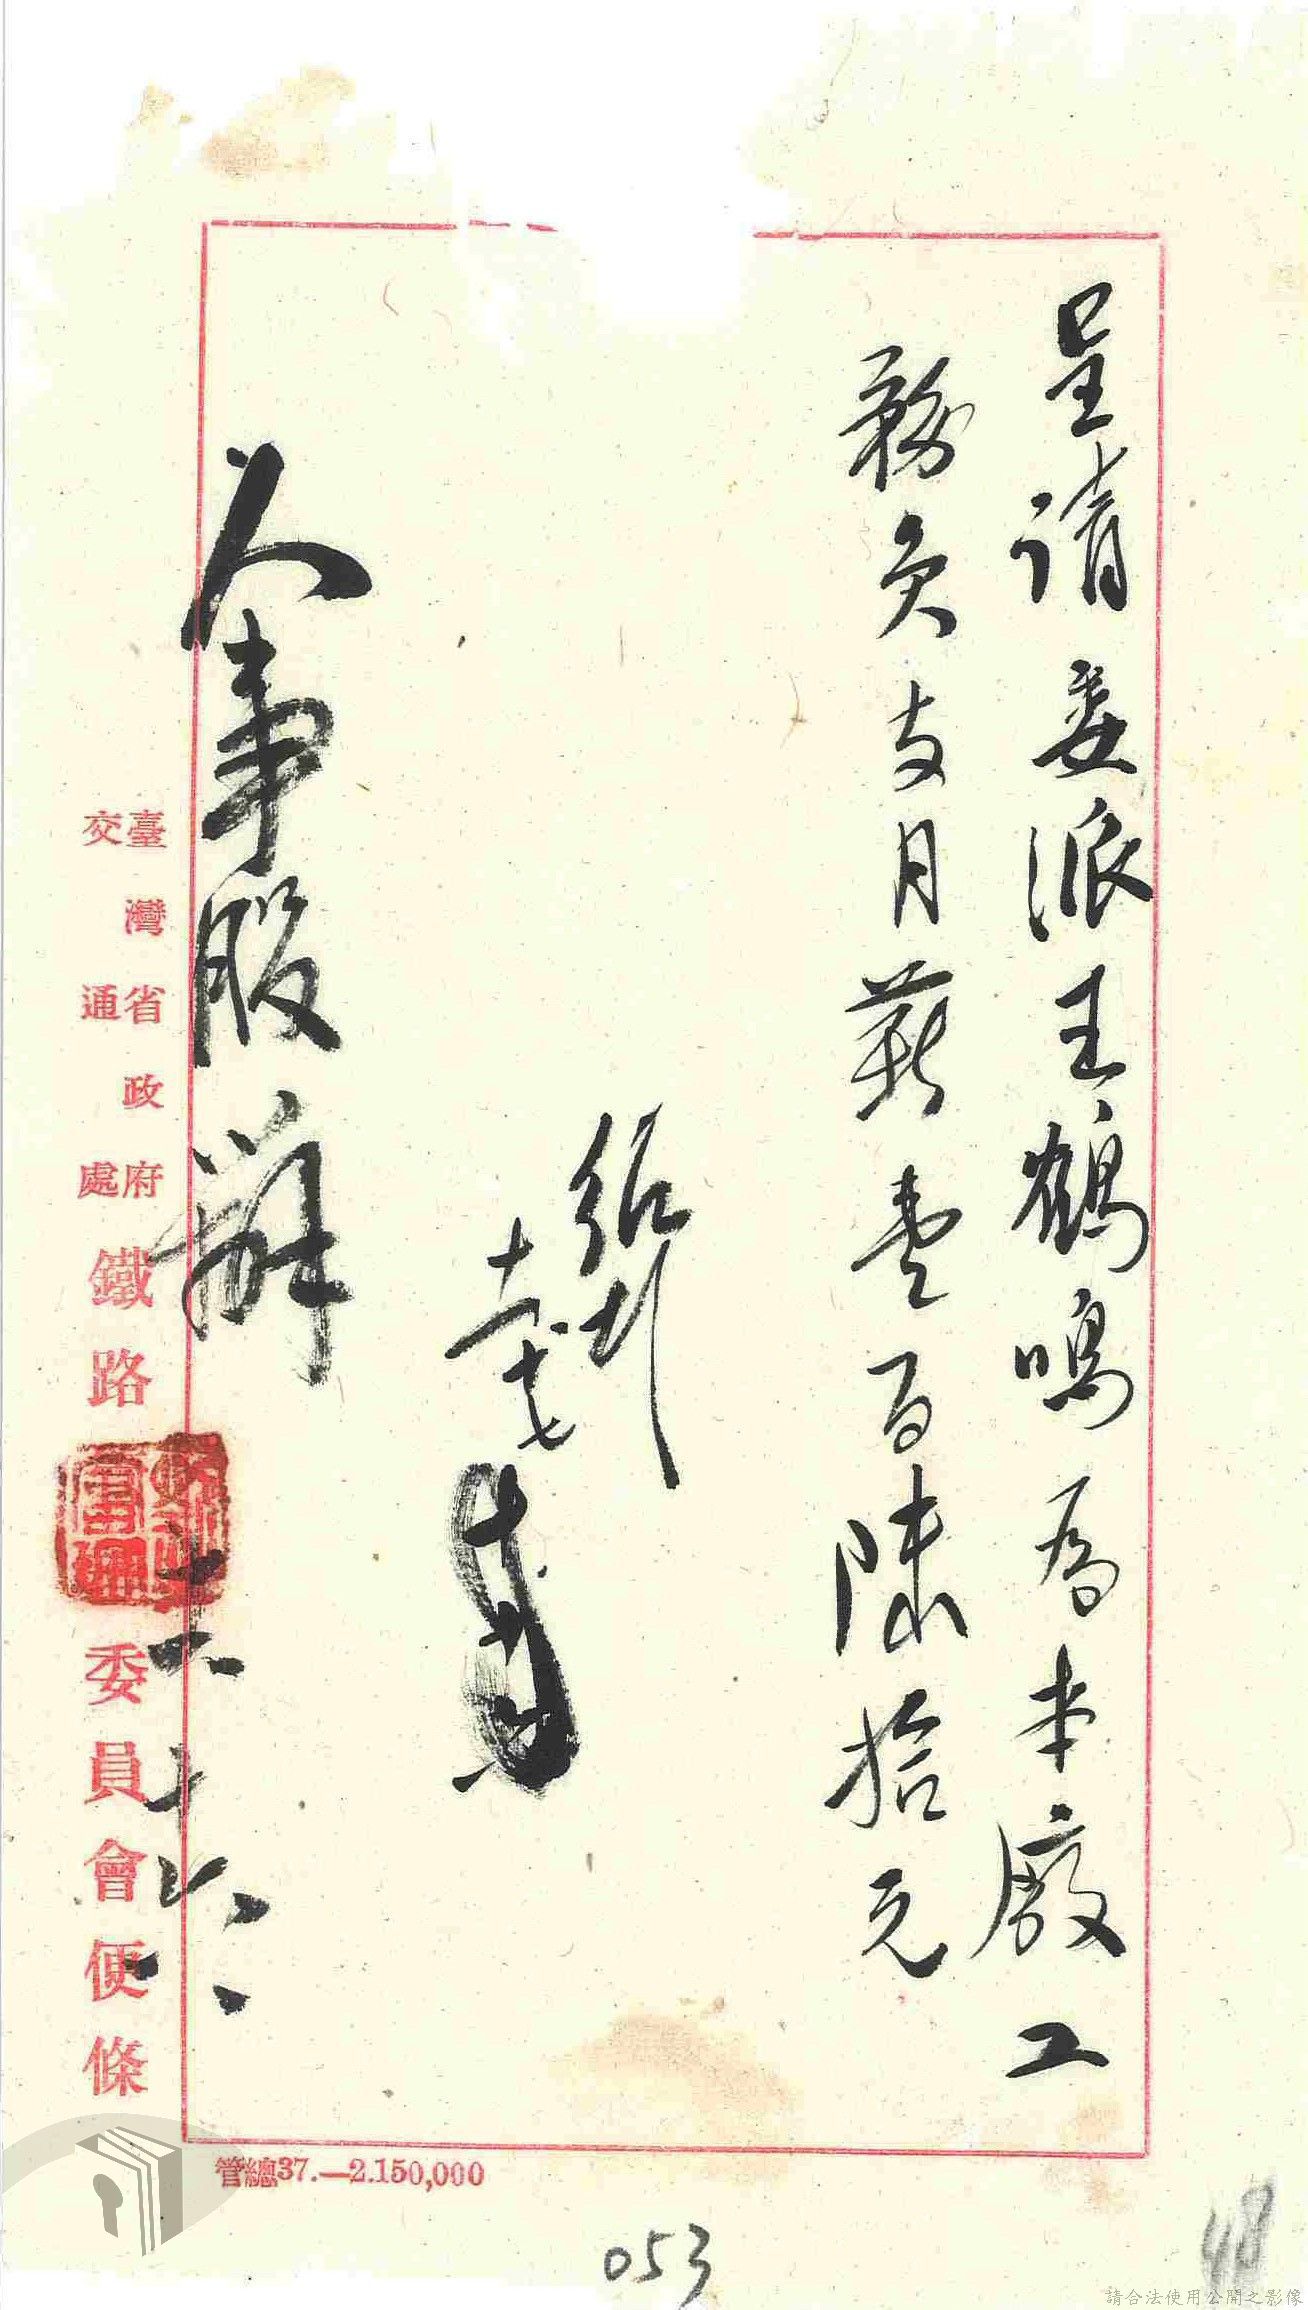 呈請委派王鶴鳴為本廠工
務員支月薪壹百陸拾元
人事股辦
十一、十六、
臺灣省政府
交通處
鐵路委員會便條
管總37.—2.150,000
053
48
請合法使用公開之影像